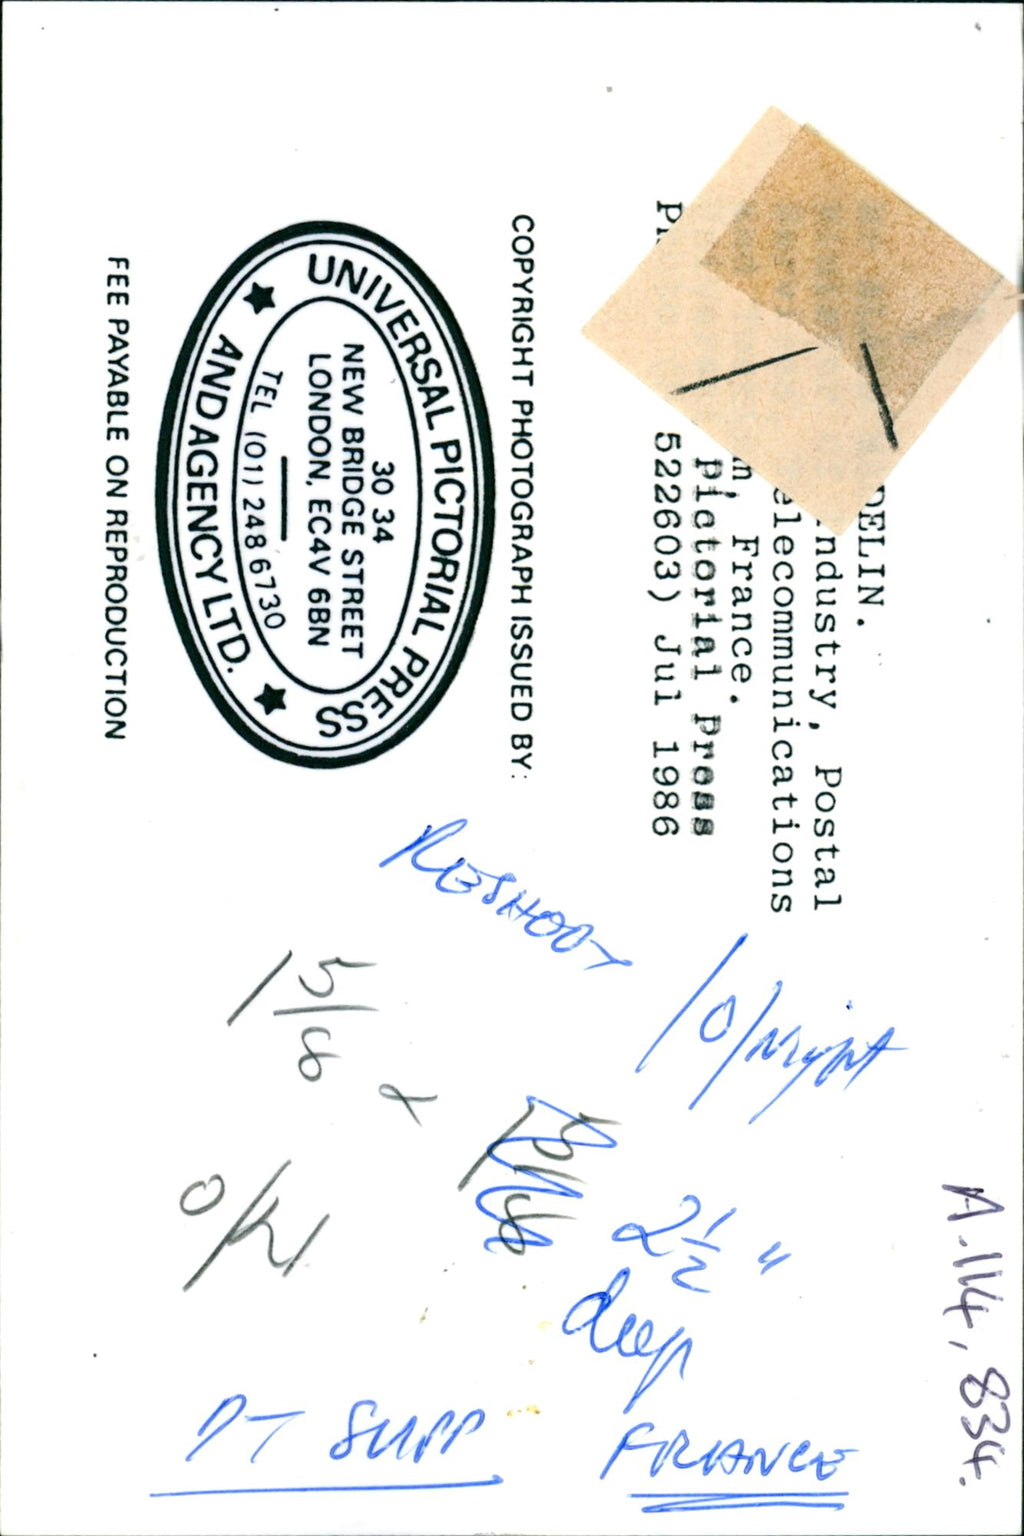 DELIN.
ndustry, Postal
elecommunications
m, France.
pictorial Press
522603) Jul 1986
COPYRIGHT PHOTOGRAPH ISSUED BY:
UNIVERSAL PICTORIAL PRESS
AND AGENCY LTD.
30 34
NEW BRIDGE STREET
LONDON, EC4V 6BN
TEL (01) 248 6730
FEE PAYABLE ON REPRODUCTION
RESHOOT
A.114, 834.
2½"
deep
SUPP FRANCE